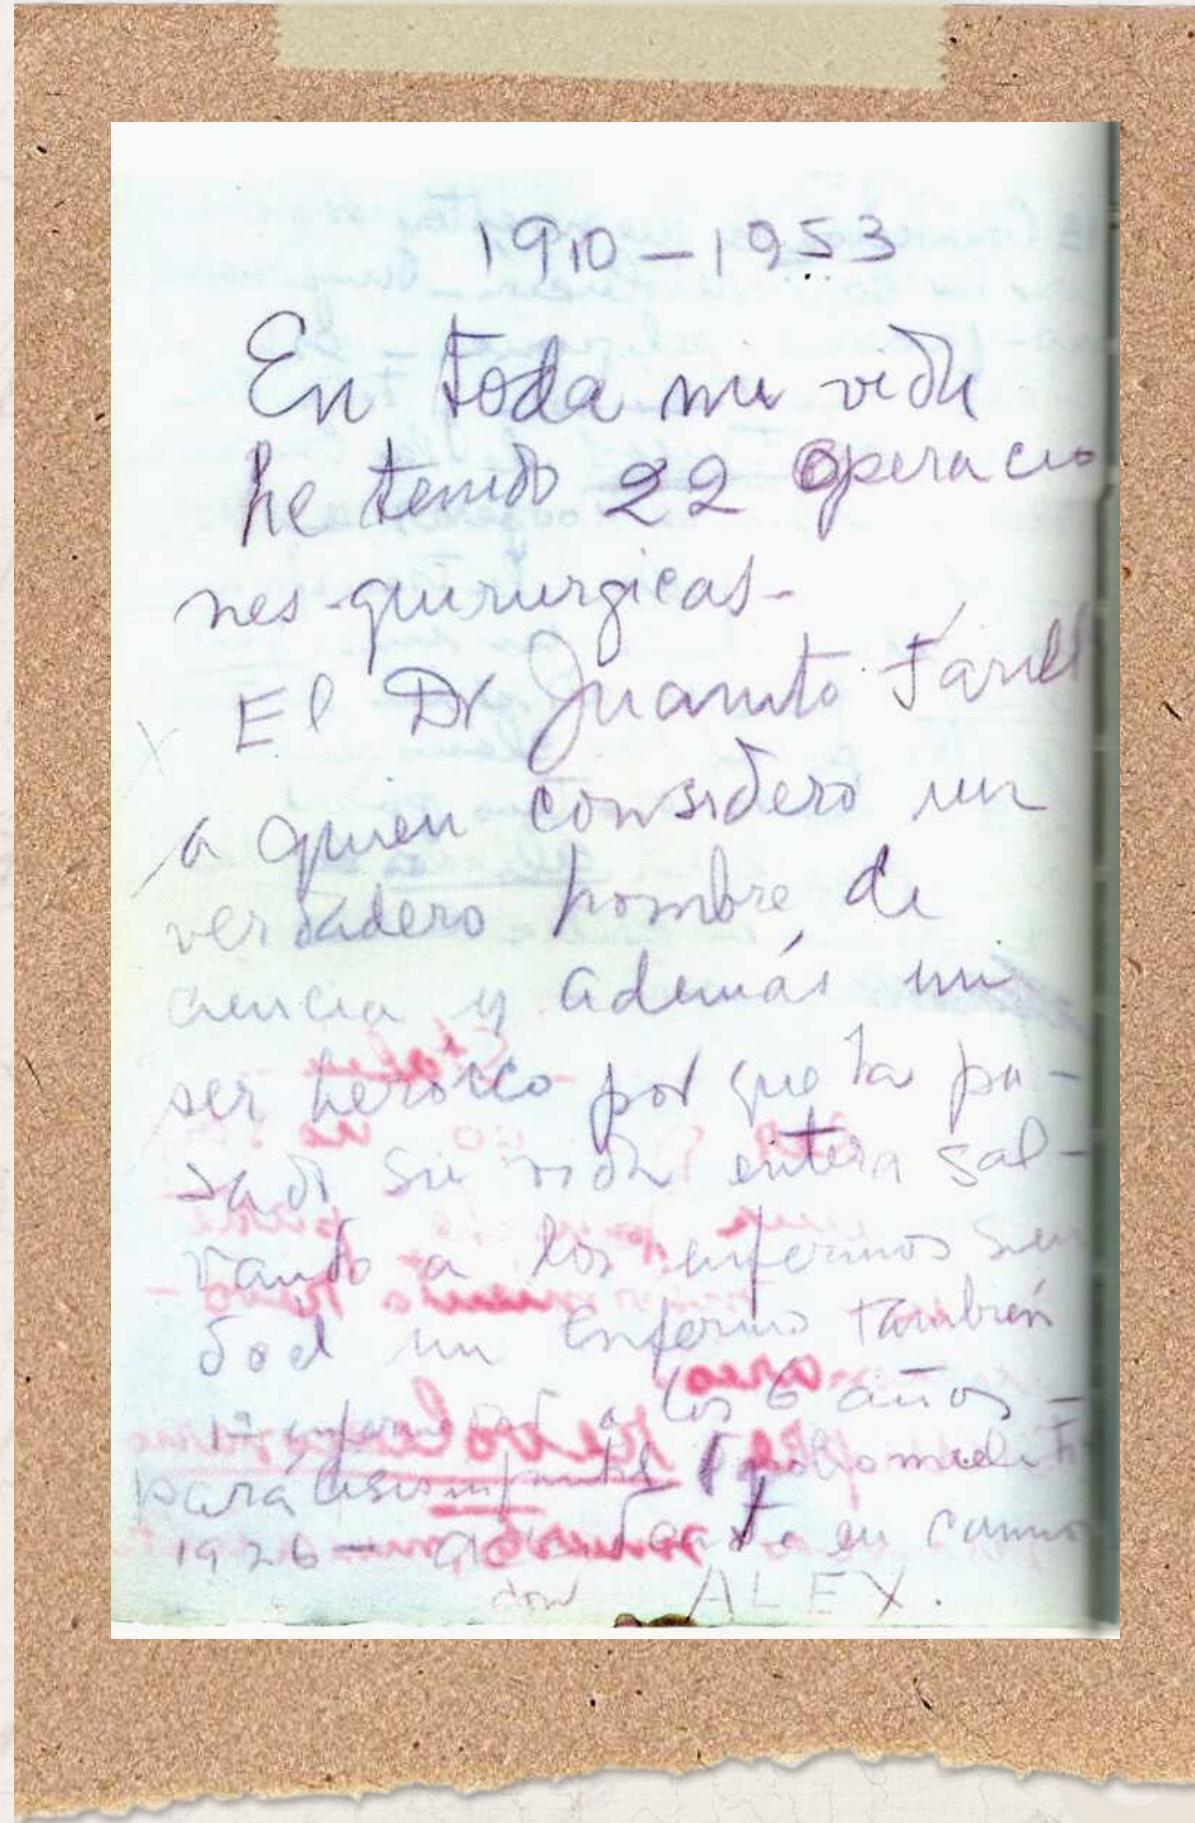 1910 – 1953
En toda mi vida
he tenido 22 operacio
nes quirurgicas-
El Dr Juanito Farill
a quien considero un
verdadero hombre de
ciencia y además un
ser heroico por que ha pa-
sado su vida entera sal-
vando a los enfermos sien
dod un enfermo también
1ª enfermedad a los 6 años -
parálisis infantil (poliomielitis
1926 – accidente en camion
con ALEX.